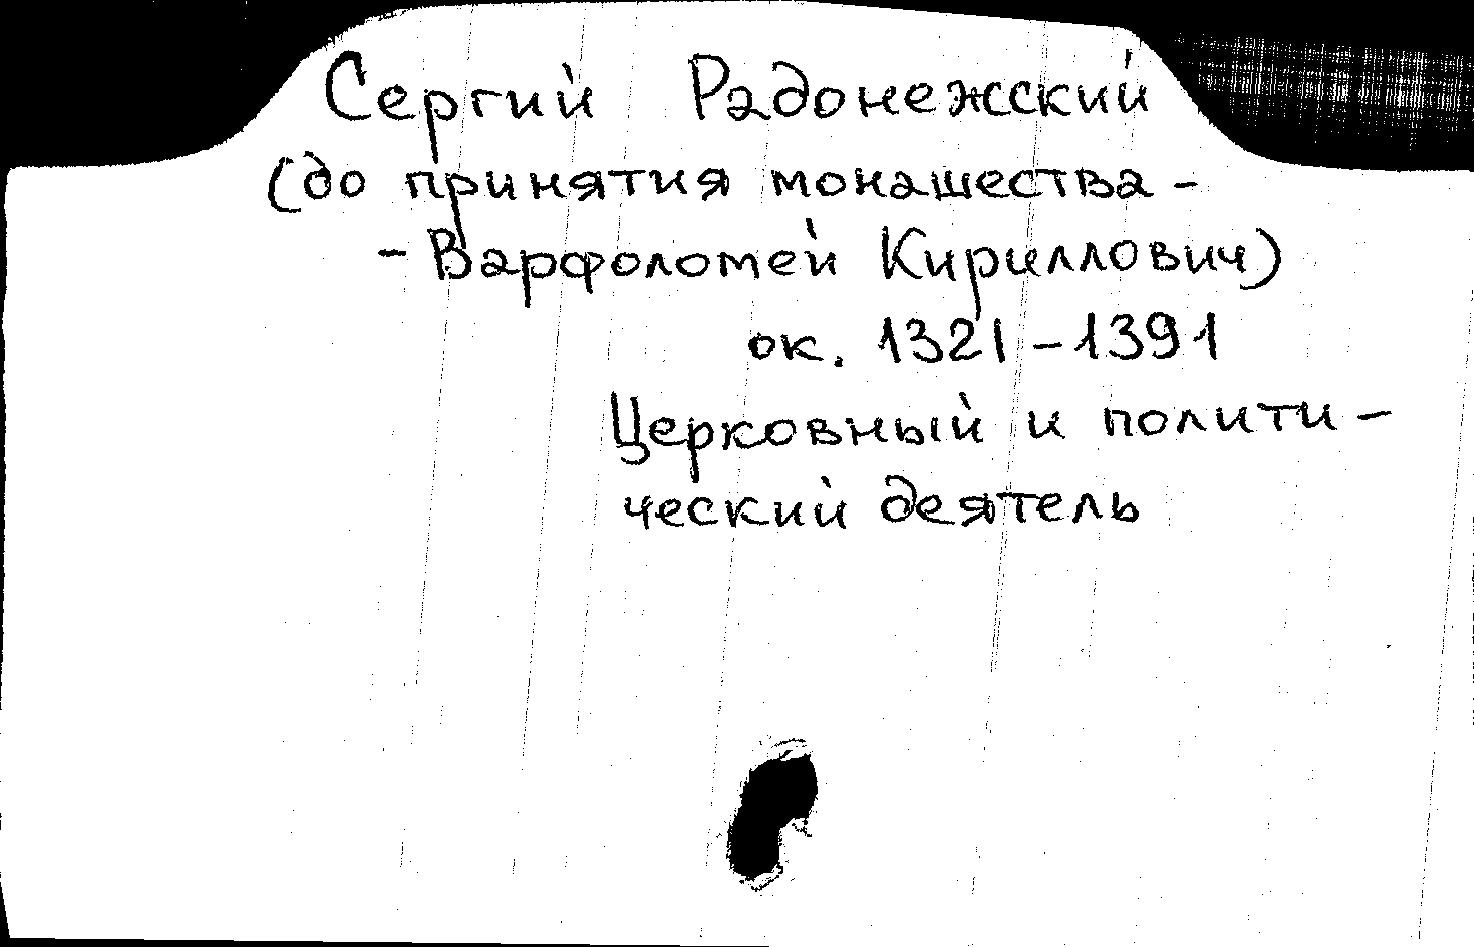 Сергий Радонежский
(до принятия монашества -
- Варфоломей Кириллович)
ок. 1321-1391
Церковный и полити-
ческий деятель